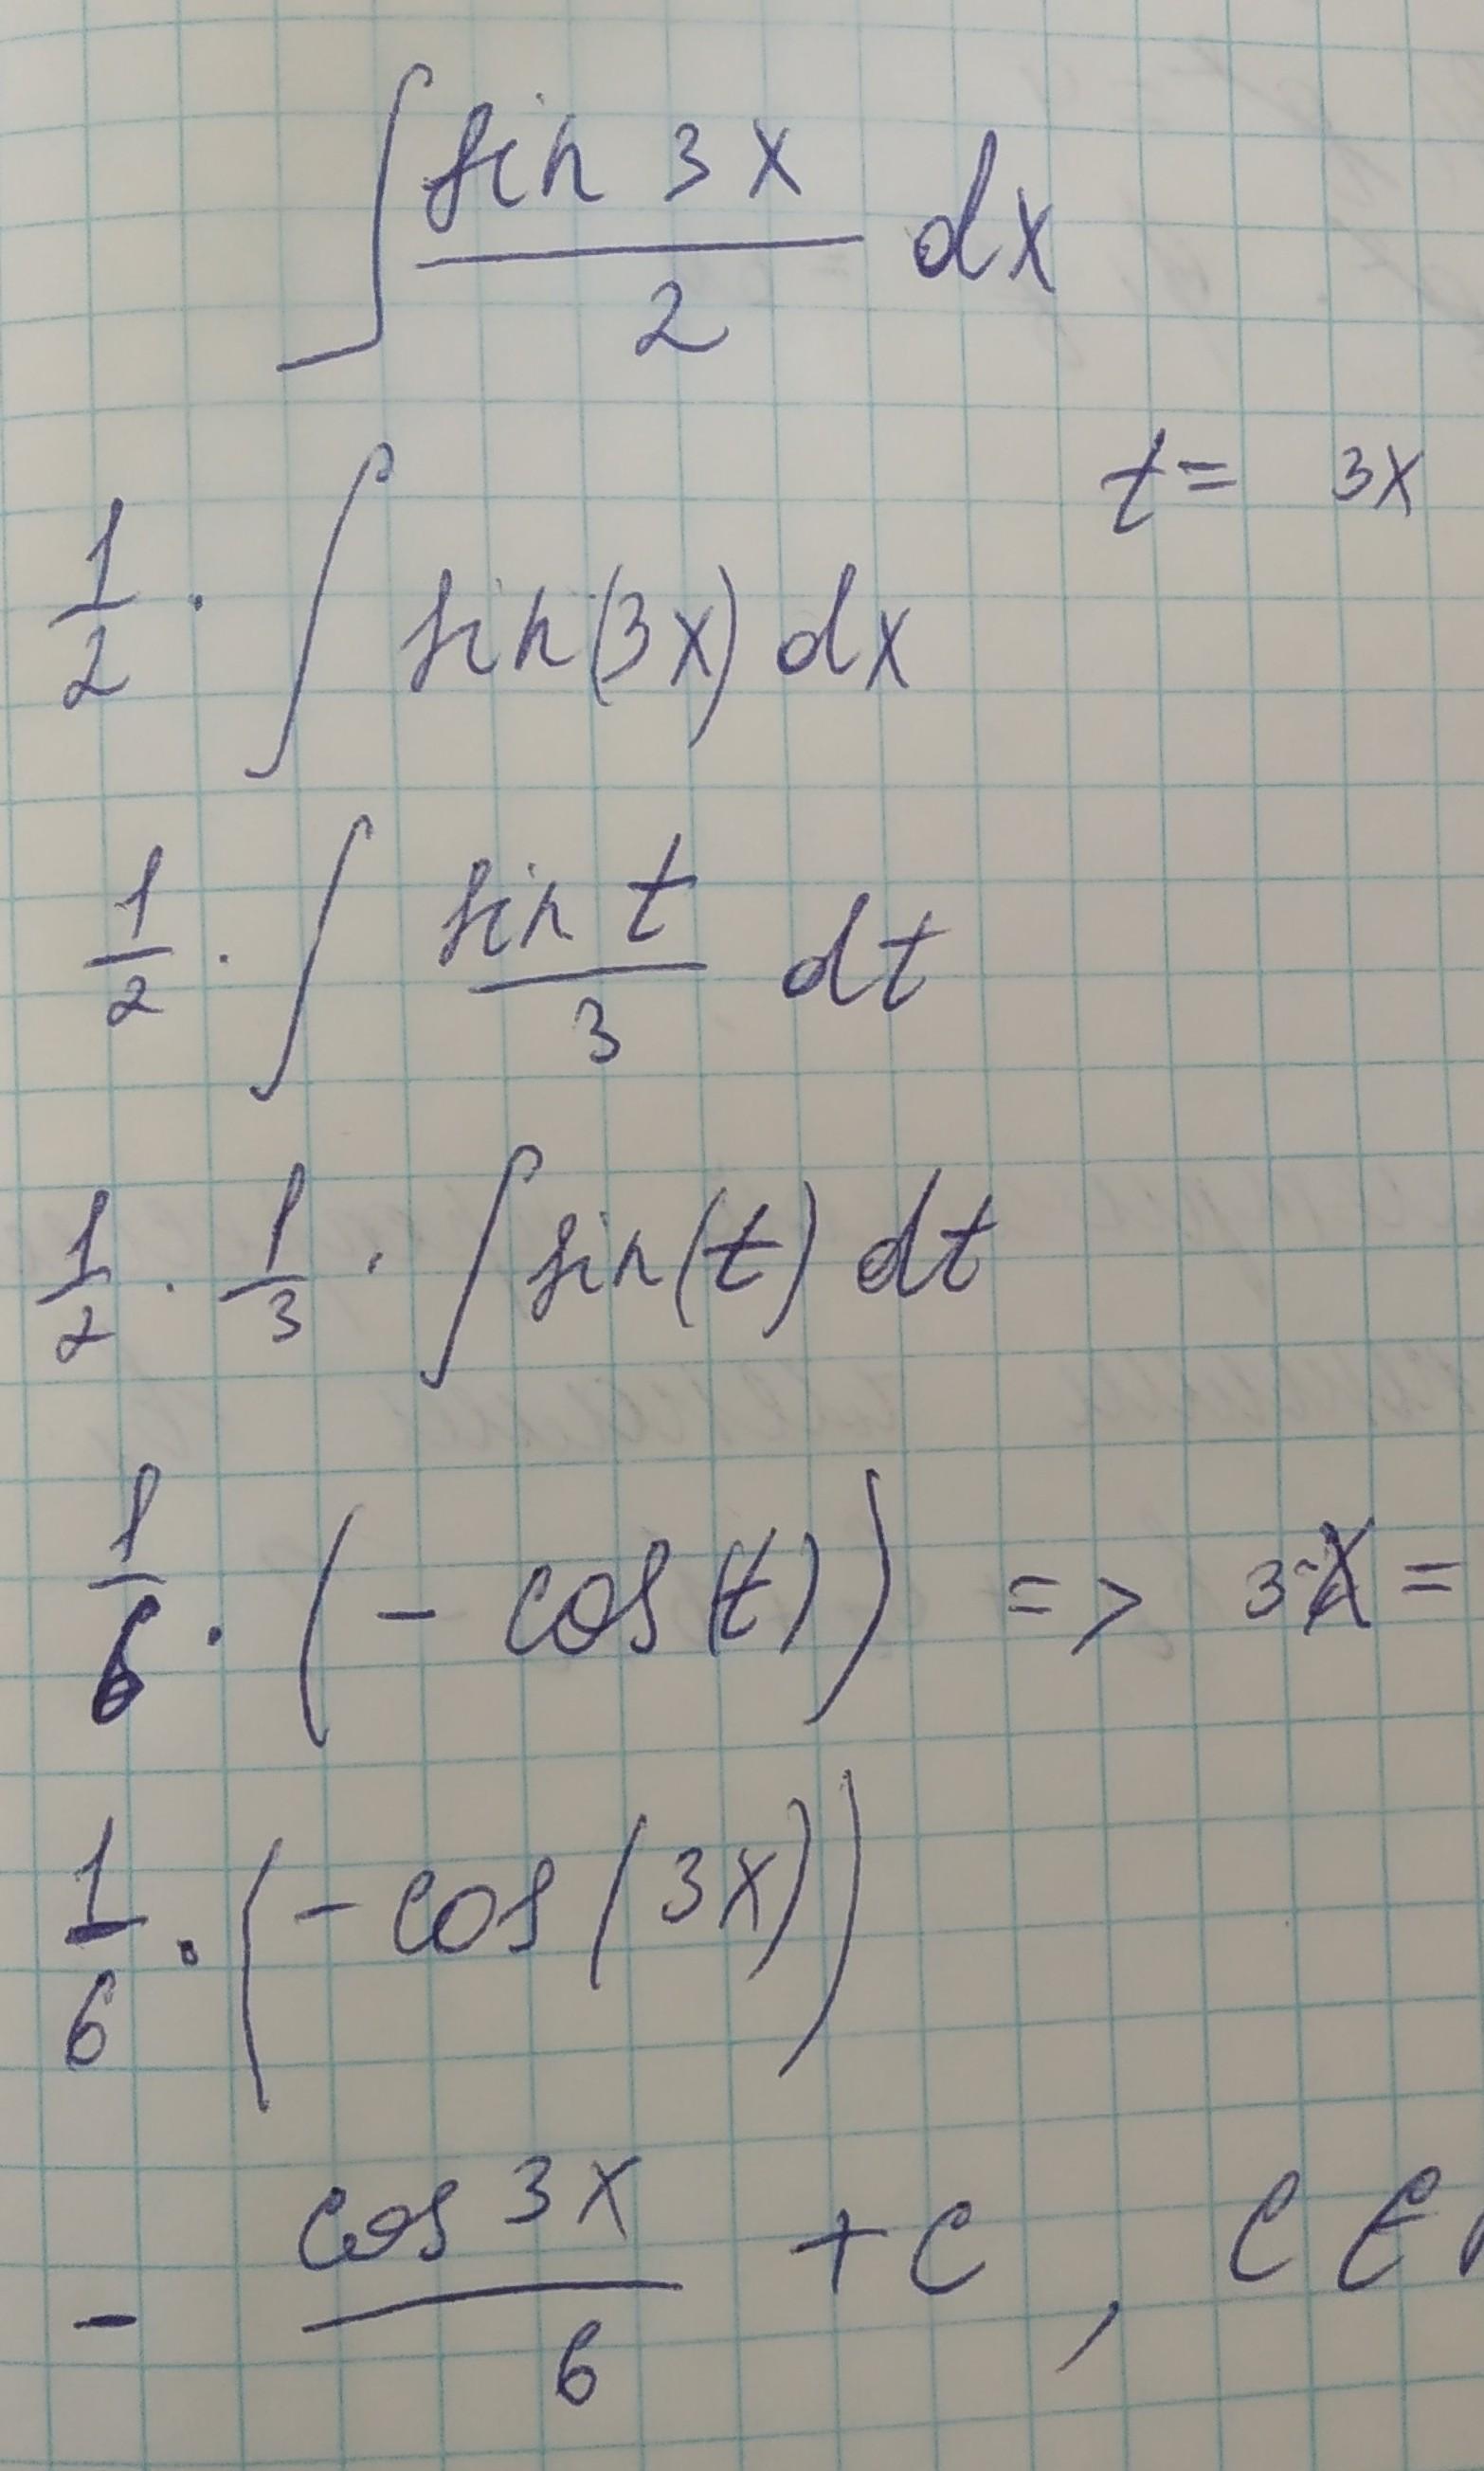 ∫ sin 3x / 2 dx
t = 3x
1/2 · ∫ sin(3x) dx
1/2 · ∫ sin t / 3 dt
1/2 · 1/3 · ∫ sin(t) dt
1/6 · (- cos(t)) => 3x =
1/6 · (- cos(3x))
- cos 3x / 6 + C , C ∈